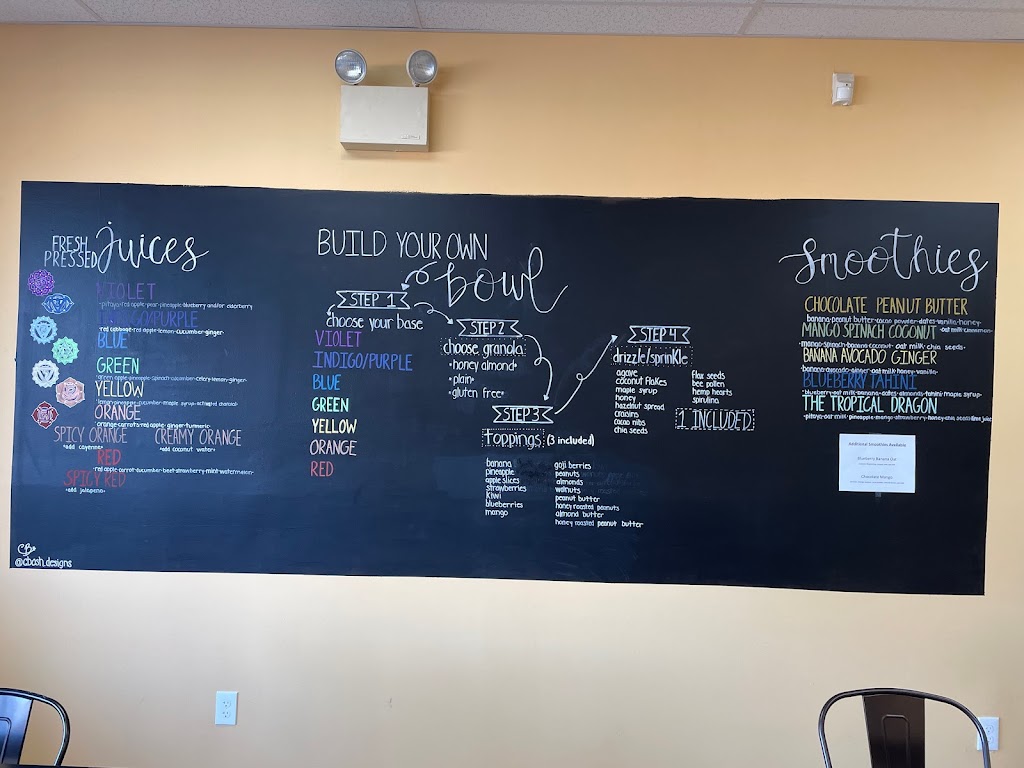 FRESH
PRESSED
Juices
VIOLET
pitaya-red apple-pear-pineapple-blueberry and/or elderberry
INDIGO/PURPLE
red cabbage-red apple-lemon-cucumber-ginger
BLUE
GREEN
green apple-pineapple-spinach-cucumber-celery-lemon-ginger
YELLOW
lemon-pineapple-cucumber-maple syrup-activated charcoal
ORANGE
orange-carrots-red apple-ginger-turmeric
SPICY ORANGE
•add cayenne•
CREAMY ORANGE
•add coconut water•
RED
red apple-carrot-cucumber-beet-strawberry-mint-watermelon
SPICY RED
•add jalapeno•
@cbash.designs
BUILD YOUR OWN
bowl
STEP 1
choose your base
VIOLET
INDIGO/PURPLE
BLUE
GREEN
YELLOW
ORANGE
RED
STEP 2
choose granola
•honey almond•
•plain•
•gluten free•
STEP 3
toppings (3 included)
banana
pineapple
apple slices
strawberries
kiwi
blueberries
mango
goji berries
peanuts
almonds
walnuts
peanut butter
honey roasted peanuts
almond butter
honey roasted peanut butter
STEP 4
drizzle/sprinkle
agave
coconut flakes
maple syrup
honey
hazelnut spread
craisins
cacao nibs
chia seeds
flax seeds
bee pollen
hemp hearts
spirulina
1 INCLUDED
Smoothies
CHOCOLATE PEANUT BUTTER
banana-peanut butter-cacao powder-dates-vanilla-honey-
oat milk-cinnamon
MANGO SPINACH COCONUT
mango-spinach-banana-coconut-oat milk-chia seeds
BANANA AVOCADO GINGER
banana-avocado-ginger-oat milk-honey-vanilla
BLUEBERRY TAHINI
blueberry-oat milk-banana-dates-almonds-tahini-maple syrup
THE TROPICAL DRAGON
pitaya-oat milk-pineapple-mango-strawberry-honey-chia seeds-lime juice
Additional Smoothies Available
Blueberry Banana Oat
Chocolate Mango